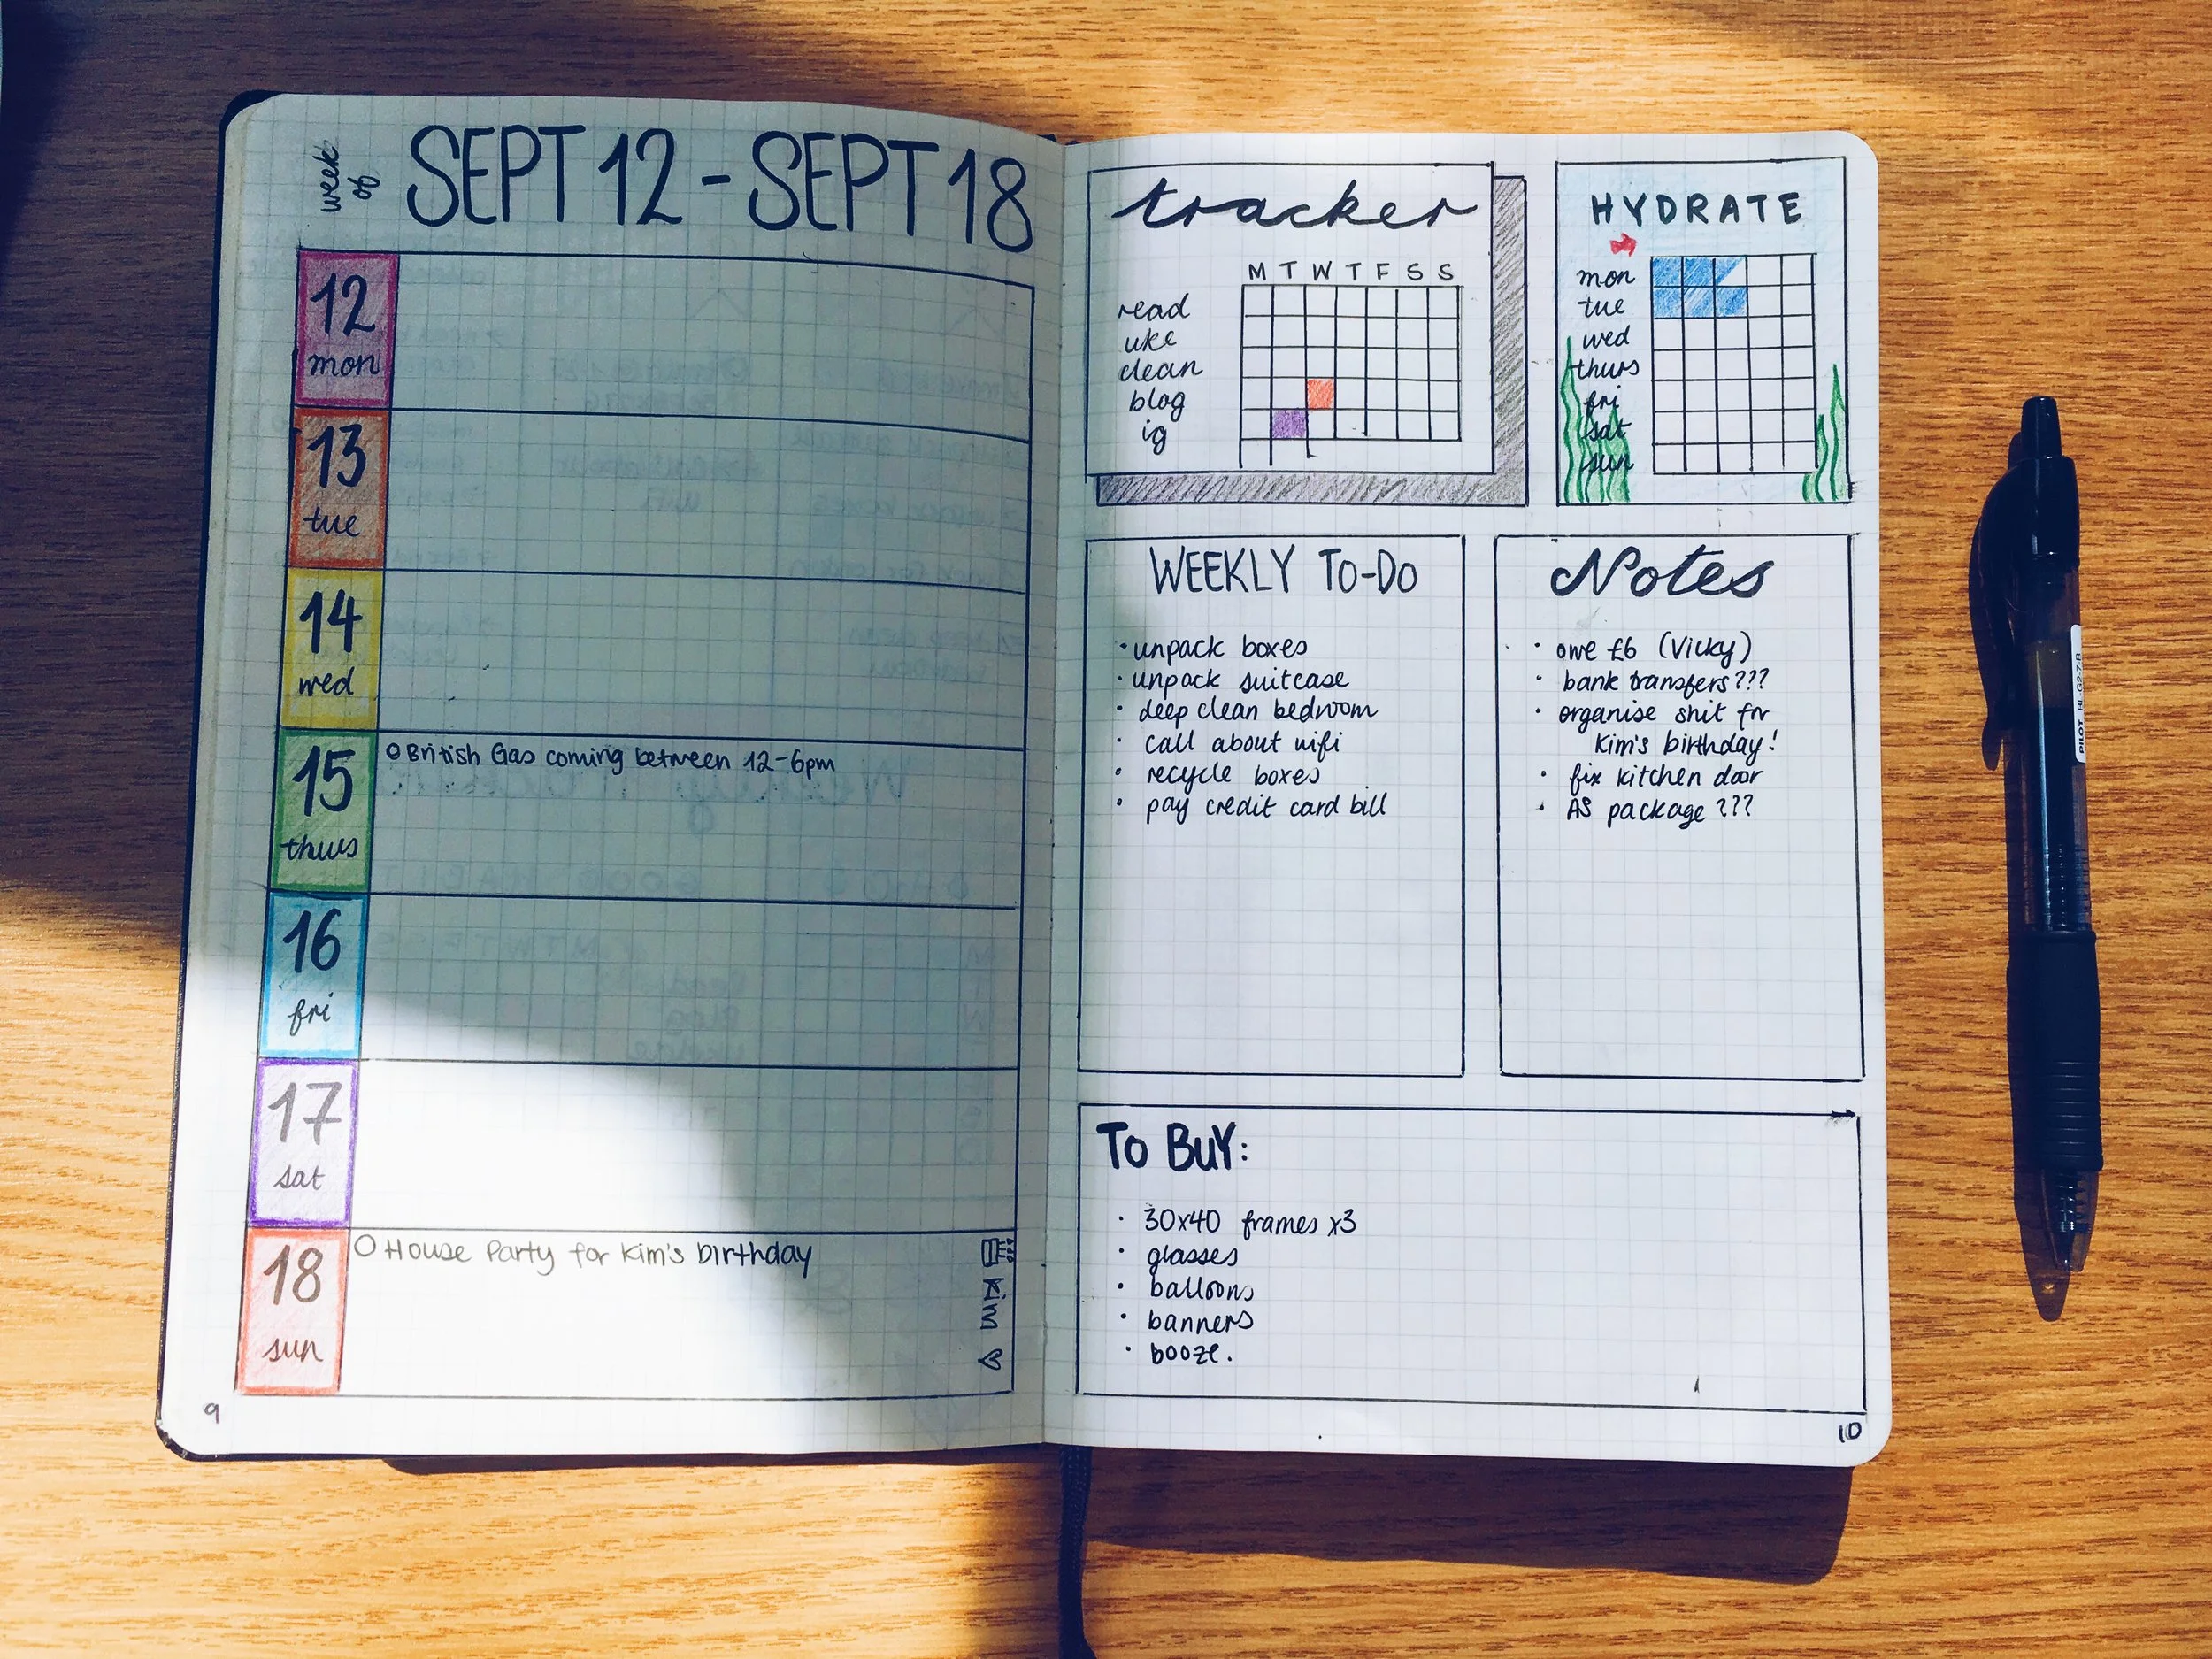 week of
SEPT 12 - SEPT 18
12
mon
13
tue
14
wed
15
thurs
British Gas coming between 12-6pm
16
fri
17
sat
18
sun
House Party for Kim's birthday
Kim
9
tracker
M T W T F S S
read
uke
clean
blog
ig
HYDRATE
mon
tue
wed
thurs
fri
sat
sun
WEEKLY TO-DO
· unpack boxes
· unpack suitcase
· deep clean bedroom
· call about wifi
· recycle boxes
· pay credit card bill
Notes
· owe £6 (Vicky)
· bank transfers???
· organise shit for
Kim's birthday!
· fix kitchen door
· AS package???
TO BUY:
· 30x40 frames x3
· glasses
· balloons
· banners
· booze.
10
PILOT BL-G2-7-B